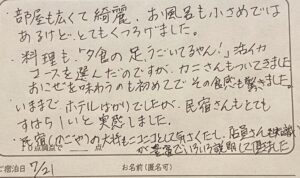 部屋も広くて綺麗、お風呂も小さめでは
あるけど、とてもくつろげました。
・料理も、「夕食の足うごいてるやん!」活イカ
コースを選んだのですが、カニさんもついてきました
おこぜを味わうのも初めてで その食感も驚きました。
いままで、ホテルばかりでしたが、民宿さんもとても
すばらしいと実感しました。
・民宿(のごや)の大将もニコニコとして気さくだし、店員さんも知識が
豊富でいろいろ説明して頂きました
10点満点で 点
ご宿泊日 7/21 お名前(匿名可)